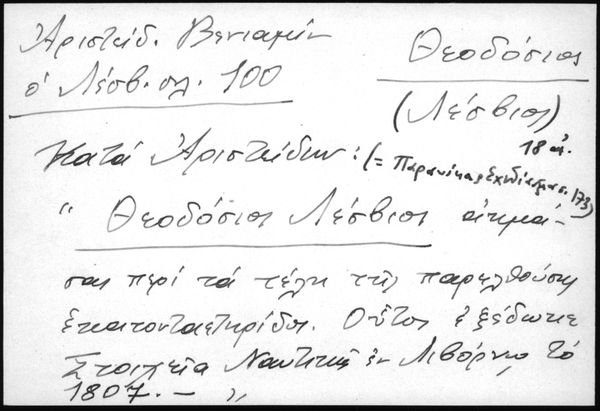 Ἀριστείδ. Βενιαμίν
ὁ Λέσβ. σελ. 100
Θεοδόσιος
(Λέσβιος)
18 αἰ.
Κατά Ἀριστείδην: (= Παρανίκας Σχεδίασμα σ. 173)
" Θεοδόσιος Λέσβιος ἀκμά-
σας περί τά τέλη τῆς παρελθούσης
ἑκατονταετηρίδος. Οὗτος ἐξέδωκε
Στοιχεῖα Ναυτικῆς ἐν Λιβόρνῳ τό
1807. — "